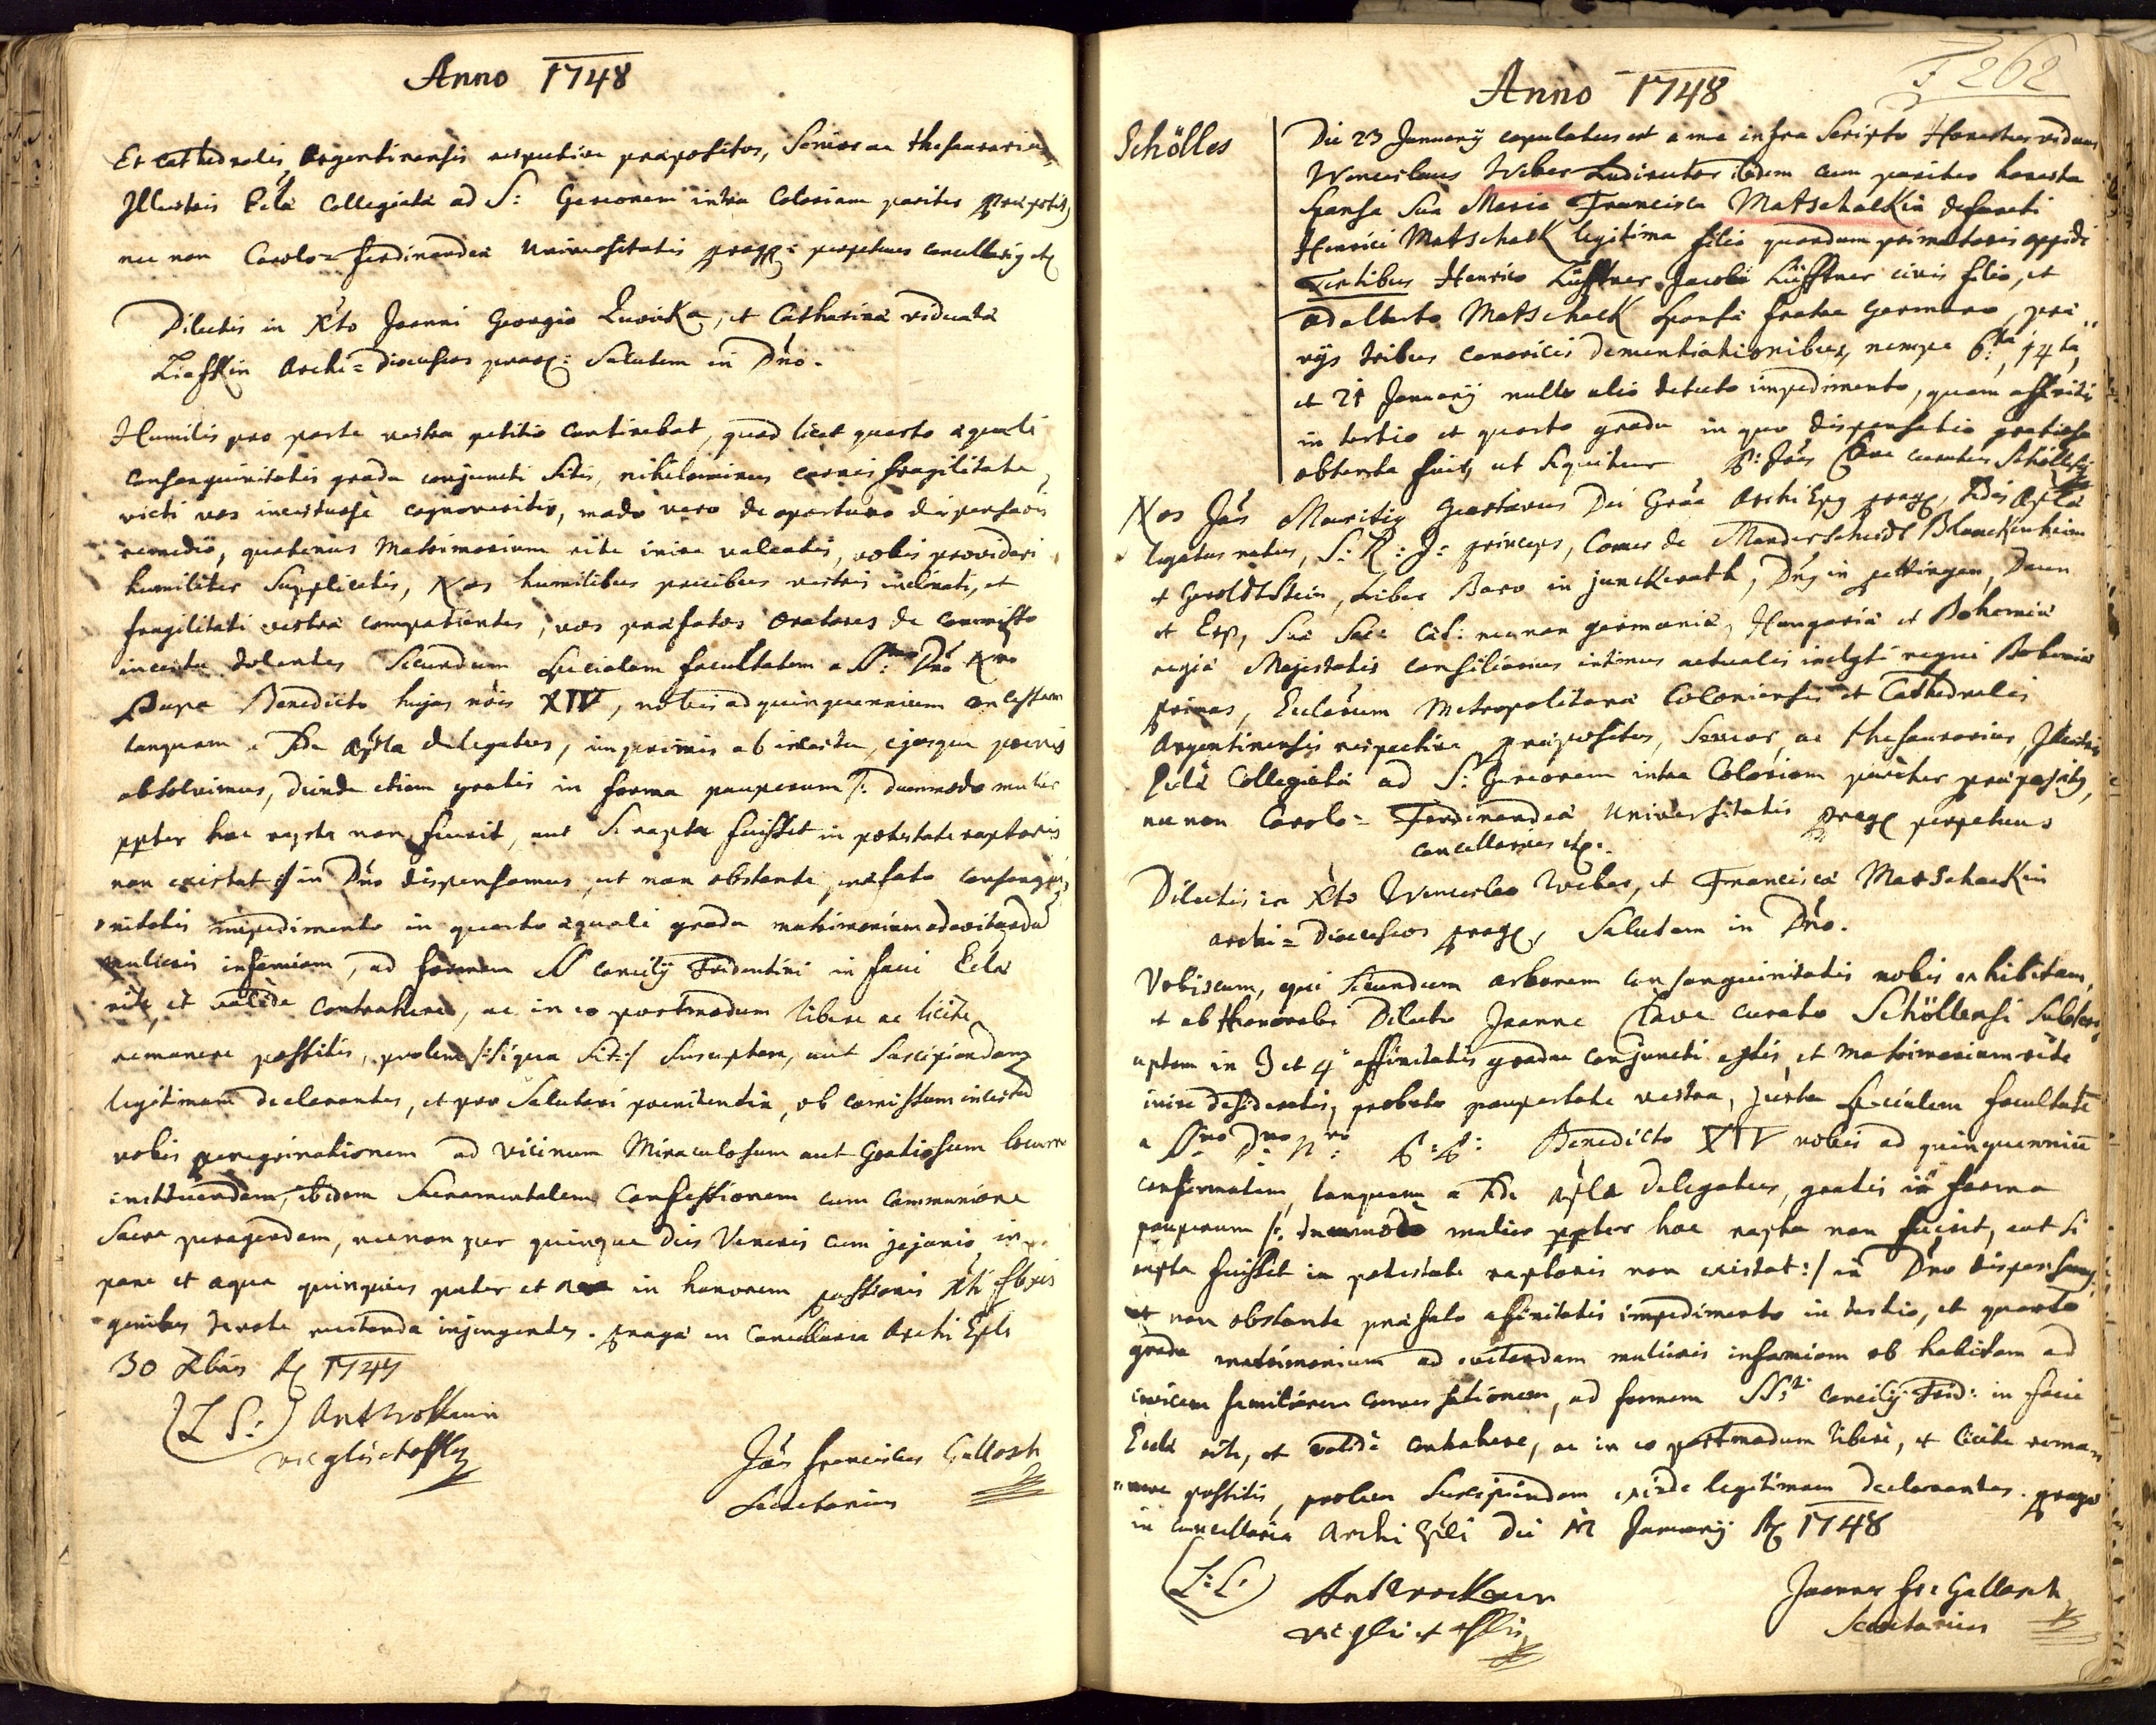 Anno 1748
Et cathedralis Argentinensis respective praepositus, Senior ac thesaurarius
Illustris Eclae Collegiatae ad S: Gereonem intra Coloniam pariter Praepositus
nec non Carolo=ferdinandeae Universitatis prag: perpetuus cancellarius etc
Dilectis in Xto Joanni Georgio, et Catharinae viduatae
Archi=dioecesis prag: Salutem in Dno.
Humilis pro parte vestra petitio continebat, quod licet quarto aequali
consanguinitatis gradu conjuncti sitis, nihilominus carnis fragilitate
victi vos incestuosè cognoveritis, modo vero de oportuno dispensationis
remedio, quatenus Matrimonium rite inire valeatis, vobis provideri
humiliter Supplicetis, Nos humilibus precibus vestris inclinati, et
fragilitati vestrae compatientes, vos praefatos Oratores de commisso
incestu dolentes Secundum Specialem facultatem a SSmo Dno Nro
Papa Benedicto hujus nois XIV, nobis ad quinquennium concessam
tanquam a Sede Apla delegatus, imprimis ab incestu, ejusque poenis
absolvimus, deinde etiam gratis in forma pauperum /: dummodo mulier
ppter hoc rapta non fuerit, aut Si rapta fuisset in potestate raptoris
non existat :/ in Dno dispensamus, ut non obstante praefato consangui
nitatis impedimento in quarto aequali gradu matrimonium ad evitandam
mulieris infamiam, ad formam S Concilij Tridentini in facie Eclae
rite, et valide contrahere, ac in eo postmodum libere ac licite
remanere possitis, prolem /:si qua sit:/ susceptam, aut Suscipiendam
legitimam declarantes, et pro Salutari poenitentia, ob comissum incestum
vobis peregrinationem ad vicinum Miraculosum aut Gratiosum locum
instituendam, ibidem Sacramentalem Confessionem cum Communione
Sacra peragendam, nec non per quinque dies Veneris cum jejunio in
pane et aqua quinquies pater et Ave in honorem passionis Xti flexis
genibus devote recitanda injungentes. Pragae in Cancellaria Archi Epli
30 Xbris A 1747
(L S:)
Vic glis et offlis
Jos Franciscus Gallasch
Secretarius
Anno 1748
F 262
Schölles
Die 23 Januarij copulatus est a me infra Scripto Honestus viduus
Wenceslaus Weber Ludirector ibidem cum pariter honesta
Sponsa Sua Maria Francisca Matschakin defuncti
Henrici Matschack legitima filia quondam primatoris oppidi
Testibus Henrico Lüfftner Jacobi Lüfftner civis filio, et
Adalberto Matschack Sponsae fratre germano, prae
vijs tribus canonicis denuntiationibus, nempe 6ta, 14ta,
et 21 Januarij nullo alio detecto impedimento, quam affinitatis
in tertio et quarto gradu in quo dispensatio gratiose
obtenta fuit, ut Sequitur P: Jos Clave curatus Schöllensis
Nos Jos Mauritius Gustavus Dei Gratia Archi Epus prag, Sedis Aplae
legatus natus, S: R: I: princeps, Comes de Manderscheidt Blanckenheim
et Geroldtstein, Liber Baro in junckerath, Dnus in Dettingen, Daun
et Erp, Suae Sacrae Caes: nec non germaniae, Hungariae et Bohemiae
regiae Majestatis consiliarius intimus actualis inclyti regni Bohemiae
primas, Eclarum Metropolitanae Coloniensis et Cathedralis
Argentinensis respective praepositus, Senior, ac thesaurarius, Illustris
Eclae Collegiatae ad S: Gereonem intra Coloniam pariter praepositus,
nec non Carolo=Ferdinandeae Universitatis prag perpetuus
cancellarius etc.
Dilectis in Xto Wenceslao Weber, et Franciscae Matschackin
archi=Dioecesis prag, Salutem in Dno.
Vobiscum, qui Secundum arborem consanguinitatis nobis exhibitam,
et ab Honorabili Dilecto Joanne Clave curato Schöllensi Subscri
ptam in 3 et 4 affinitatis gradu conjuncti estis, et matrimonium rite
inire desideratis, probata paupertate vestra, juxta Specialem facultatem
a SSmo Dno Nro P:P: Benedicto XIV nobis ad quinquennium
confirmatam, tanquam a Sede Apla delegatus, gratis in forma
pauperum /: dummodo mulier ppter hoc rapta non fuerit, aut si
rapta fuisset in potestate raptoris non existat :/ in Dno dispensamus,
ut non obstante praefato affinitatis impedimento in tertio, et quarto
gradu matrimonium ad evitandam mulieris infamiam ob habitam ad
invicem familiarem conversationem, ad formam SSti Concilij Trid: in facie
Eclae rite, et valide contrahere, ac in eo postmodum libere, et licite rema
nere possitis, prolem Suscipiendam exinde legitimam declarantes. Pragae
in Cancellaria Archi Epli die 12 Januarij A 1748
(L:S:)
Vic glis et offlis
Joannes Frc Gallasch
Secretarius